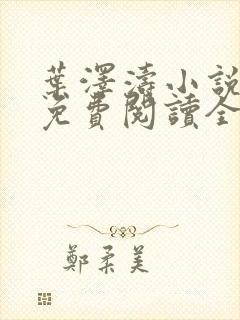 葉澤濤小說
免費閱讀全
鄭柔美